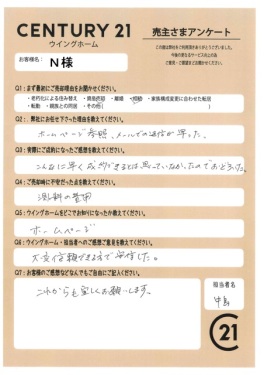 CENTURY 21
ウイングホーム
売主さまアンケート
この度は弊社をご利用頂きありがとうございました。
今後の更なるサービス向上の為
ご意見・ご要望をお聞かせください。
お客様名：
N様
Q1：まず最初にご売却理由をお聞かせください。
・老朽化による住み替え ・資産売却 ・離婚 ・相続 ・家族構成変更に合わせた転居
・転勤 ・親族との同居 ・その他（ ）
Q2： 弊社にお任せ下さった理由を教えてください。
ホームページ参照、メールでの返信が早った。
Q3：実際にご成約になったご感想を教えてください。
こんなに早く成約できるとは思っていなかったのでおどろいた。
Q4：ご売却時に不安だった点を教えてください。
測料の費用
Q5：ウイングホームをどこでお知りになったか教えてください。
ホームページ
Q6：ウイングホーム・担当者へのご感想ご意見を教えてください。
大変信頼できる方で安信した。
Q7：お客様のご感想などなんでもご自由にご記入ください。
これからも宜しくお願いします。
担当者名
中島
C21